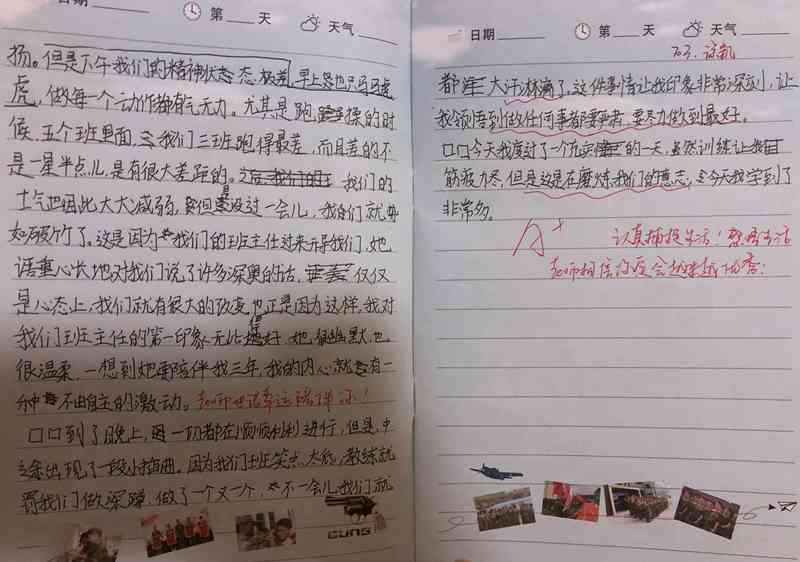 日期 第 天 天气
扬。但是下午我们的精神状态极差,早上尽也只马马虎
虎,做每一个动作都有气无力。尤其是跑操的时
候,五个班里面,我们三班跑得最差,而且差的不
是一星半点儿,是有很大差距的。我们的
士气也因此大大减弱,但是没过一会儿,我们就势
如破竹了。这是因为我们的班主任过来开导我们,她
语重心长地对我们说了许多深奥的话,仅仅
是心态上,我们就有很大的改变,也正是因为这样,我对
我们班主任的第一印象无比好,她很幽默,也
很温柔,一想到她要陪伴我三年,我的内心就有一
种不由自主的激动。老师也很幸运陪伴你!
口口到了晚上,一切都在顺顺利利进行,但是,中
途出现了一段小插曲。因为我们班笑点太低,教练就
罚我们做深蹲,做了一个又一个,不一会儿,我们就
GUNS
日期 第 天 天气
都大汗淋漓了,这件事情让我印象非常深刻,让
我领悟到做任何事都要认真,要尽力做到最好。
口口今天我度过了一个充实的一天,虽然训练让我
筋疲力尽,但是这是在磨炼我们的意志,今天我学到了
非常多。
A+
认真捕捉生活!感悟生活
老师相信你会越来越优秀!